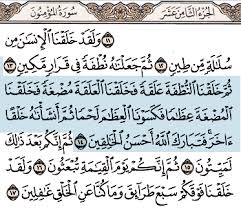 الجزء الثامن عشر
سورة المؤمنون
١١ ولقد خلقنا الإنسن من
سللة من طين ١٢ ثم جعلنه نطفة في قرار مكين ١٣
ثم خلقنا النطفة علقة فخلقنا العلقة مضغة فخلقنا
المضغة عظما فكسونا العظم لحما ثم أنشأنه خلقا
ءاخر فتبارك الله أحسن الخلقين ١٤ ثم إنكم بعد ذلك
لميتون ١٥ ثم إنكم يوم القيمة تبعثون ١٦ ولقد
خلقنا فوقكم سبع طرائق وما كنا عن الخلق غفلين ١٧